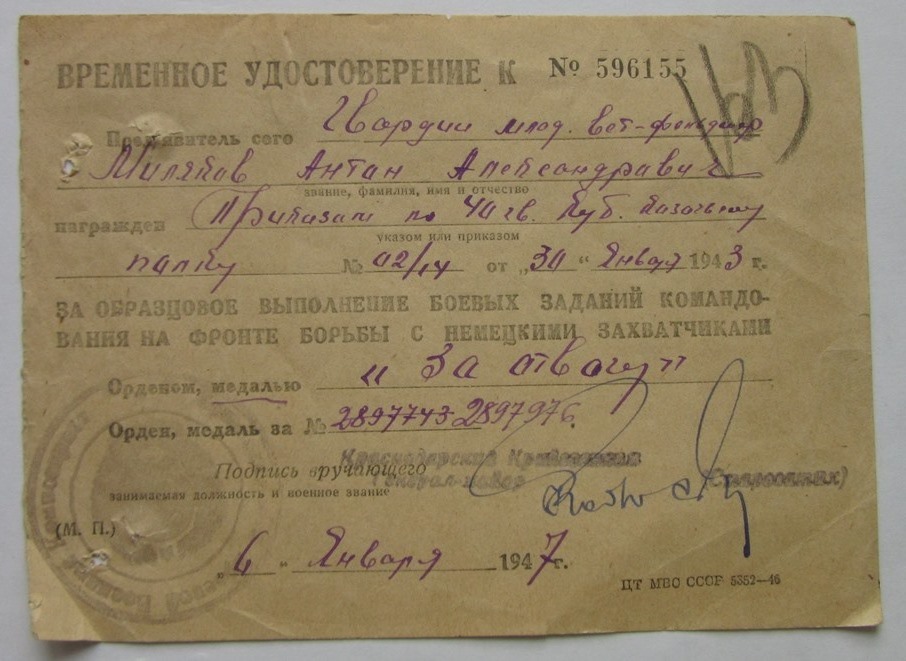 ВРЕМЕННОЕ УДОСТОВЕРЕНИЕ К № 596155
Предъявитель сего Гвардии млад. вет-фельдшер
Миляков Антан Александравич
звание, фамилия, имя и отчество
награжден Приказам по 40 гв. Куб. Казачьему
указом или приказом
палку № 02/14 от „30“ Января 1943 г.
ЗА ОБРАЗЦОВОЕ ВЫПОЛНЕНИЕ БОЕВЫХ ЗАДАНИЙ КОМАНДО-
ВАНИЯ НА ФРОНТЕ БОРЬБЫ С НЕМЕЦКИМИ ЗАХВАТЧИКАМИ
Орденом, медалью „За отвагу"
Орден, медаль за № 2897743 2897976.
Краснодарский Крайвоенком
Подпись вручающего Генерал-майор
занимаемая должность и военное звание
(М. П.)
„6“ Января 1947 г.
ЦТ МВС СССР 5352—46